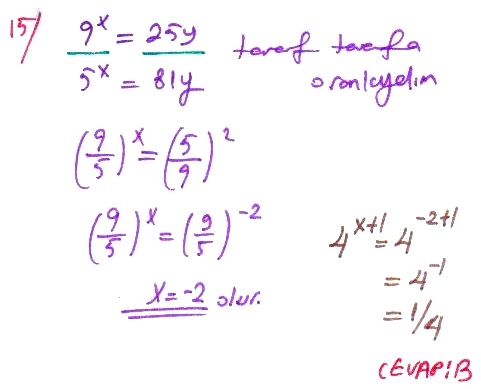 15/ 9^x = 25y
5^x = 81y
taraf tarafa
oranlayalım
(9/5)^x = (5/9)^2
(9/5)^x = (9/5)^-2
x = -2 olur.
4^x+1 = 4^-2+1
= 4^-1
= 1/4
CEVAP:B